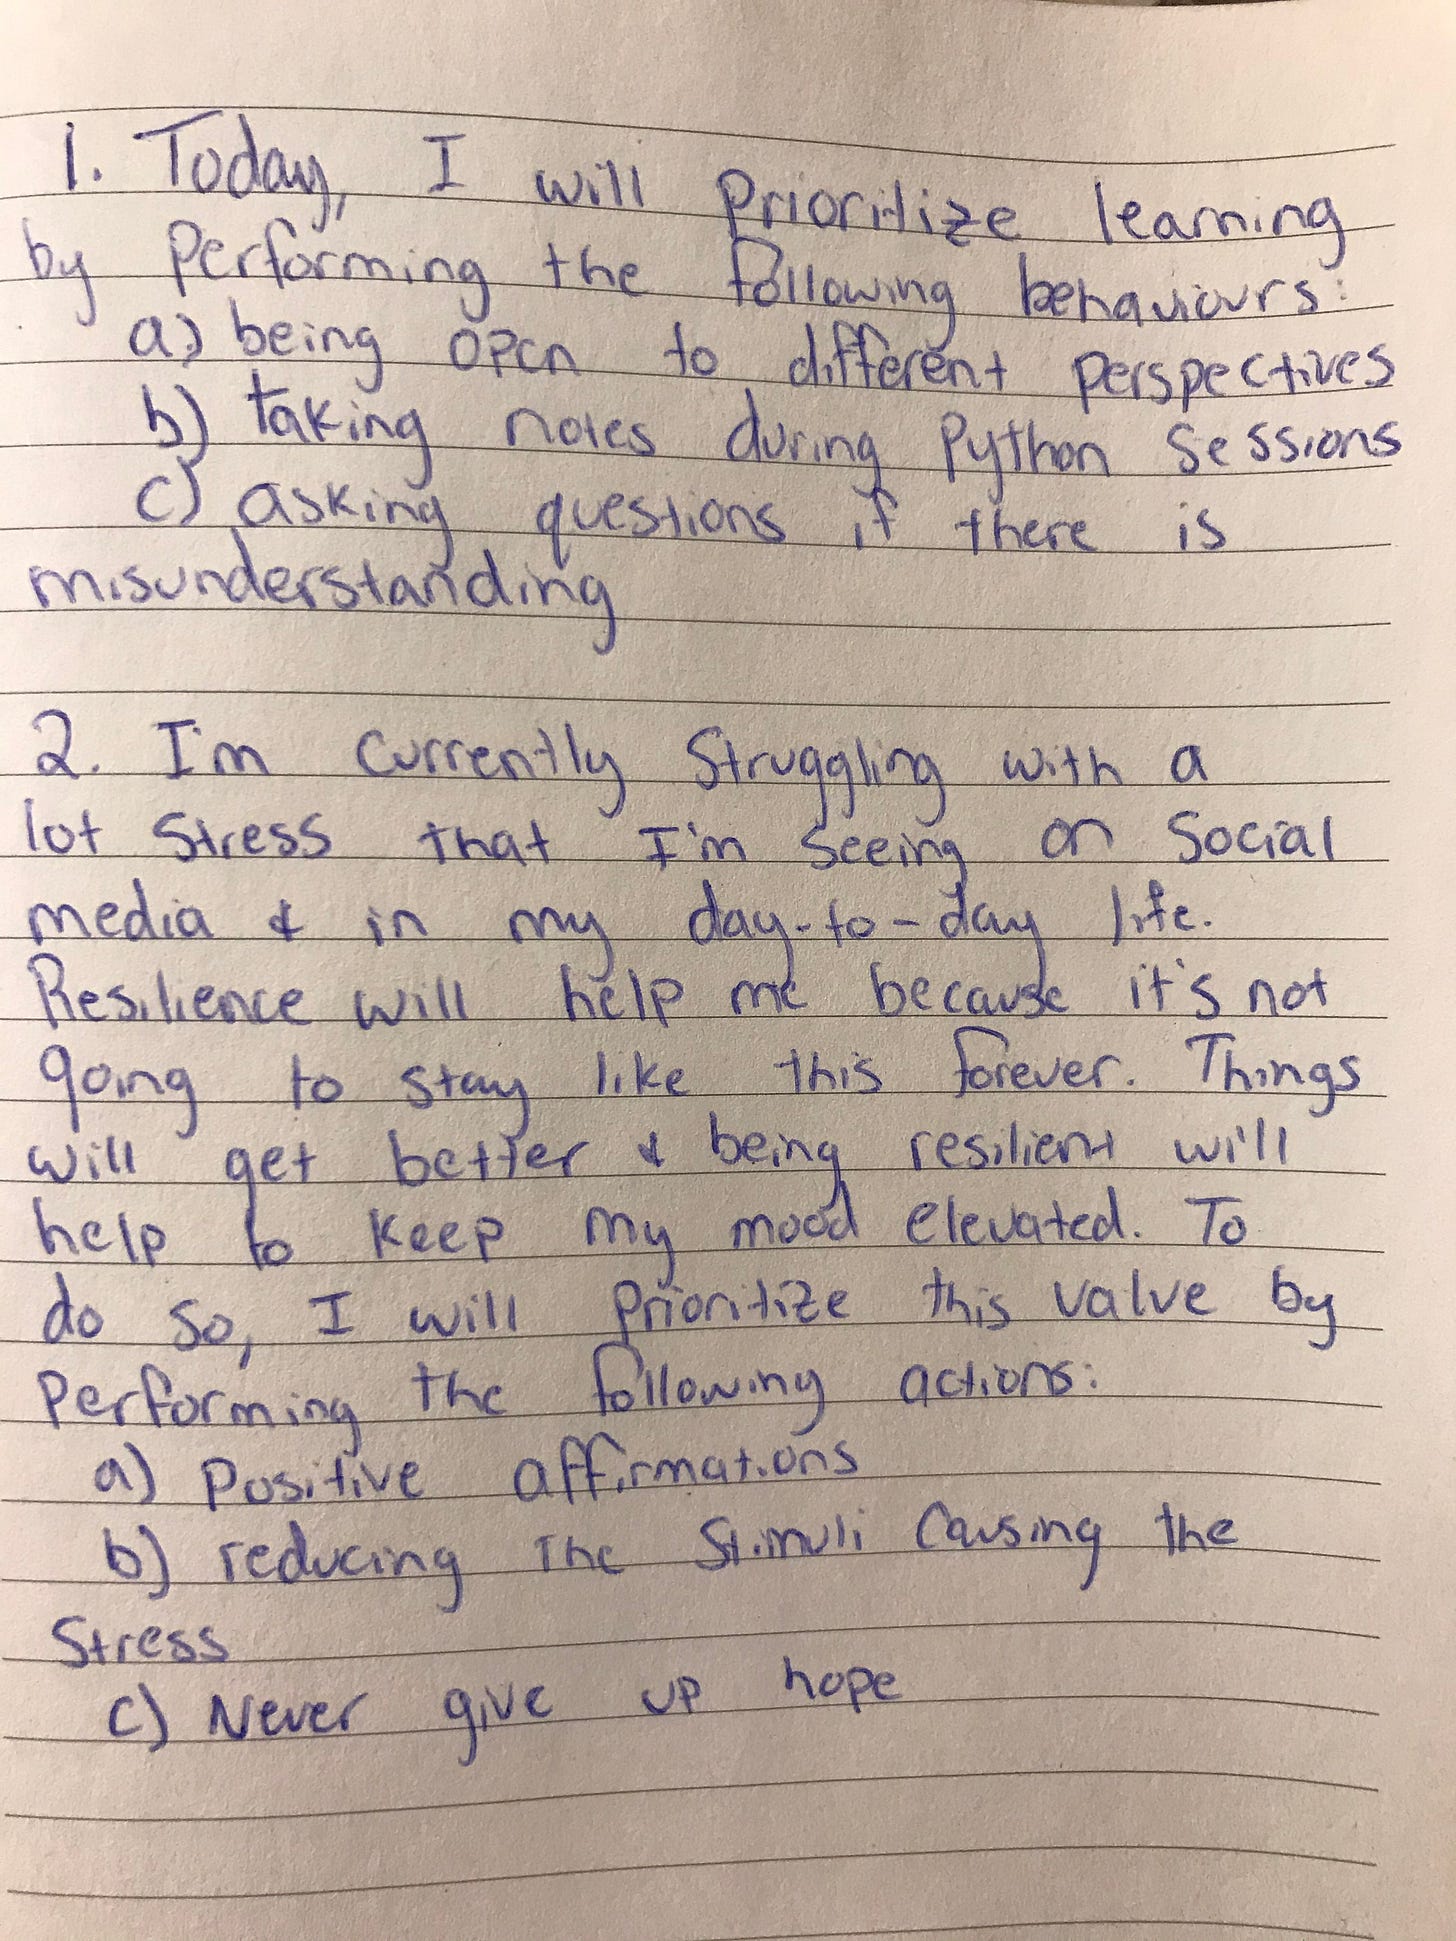 1. Today, I will prioritize learning
by performing the following behaviours:
a) being open to different perspectives
b) taking notes during Python sessions
c) asking questions if there is
misunderstanding
2. I'm currently struggling with a
lot stress that I'm seeing on social
media & in my day-to-day life.
Resilience will help me because it's not
going to stay like this forever. Things
will get better & being resilient will
help to keep my mood elevated. To
do so, I will prioritize this value by
performing the following actions:
a) Positive affirmations
b) reducing the stimuli causing the
stress
c) Never give up hope